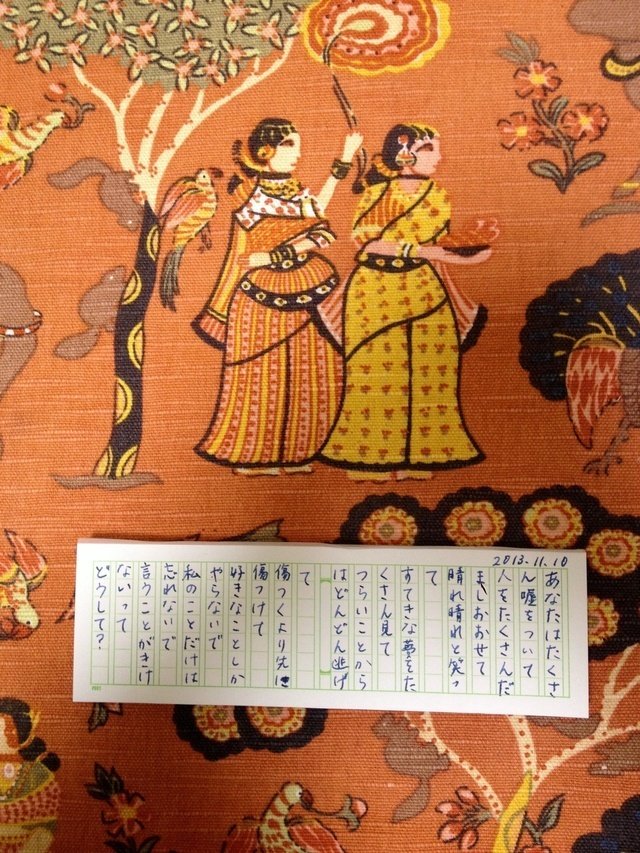 2013.11.10
あなたはたくさ
ん嘘をついて
人をたくさんだ
ましおおせて
晴れ晴れと笑っ
て
すてきな夢をた
くさん見て
つらいことから
はどんどん逃げ
て
傷つくより先に
傷つけて
好きなことしか
やらないで
私のことだけは
忘れないで
言うことがきけ
ないって
どうして?